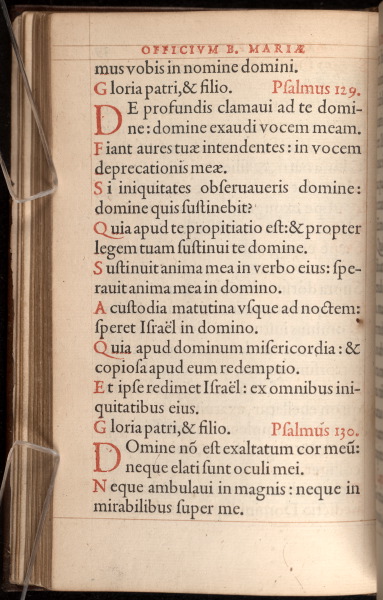 OFFICIVM B. MARIÆ
mus vobis in nomine domini.
Gloria patri, & filio. Psalmus 129.
DE profundis clamaui ad te domi-
ne: domine exaudi vocem meam.
Fiant aures tuæ intendentes: in vocem
deprecationis meæ.
Si iniquitates obſeruaueris domine:
domine quis ſuſtinebit?
Quia apud te propitiatio eſt: & propter
legem tuam ſuſtinui te domine.
Suſtinuit anima mea in verbo eius: ſpe-
rauit anima mea in domino.
A cuſtodia matutina vſque ad noctem:
ſperet Iſraël in domino.
Quia apud dominum miſericordia: &
copioſa apud eum redemptio.
Et ipſe redimet Iſraël: ex omnibus ini-
quitatibus eius.
Gloria patri, & filio. Pſalmus 130.
DOmine nõ eſt exaltatum cor meũ:
neque elati ſunt oculi mei.
Neque ambulaui in magnis: neque in
mirabilibus ſuper me.